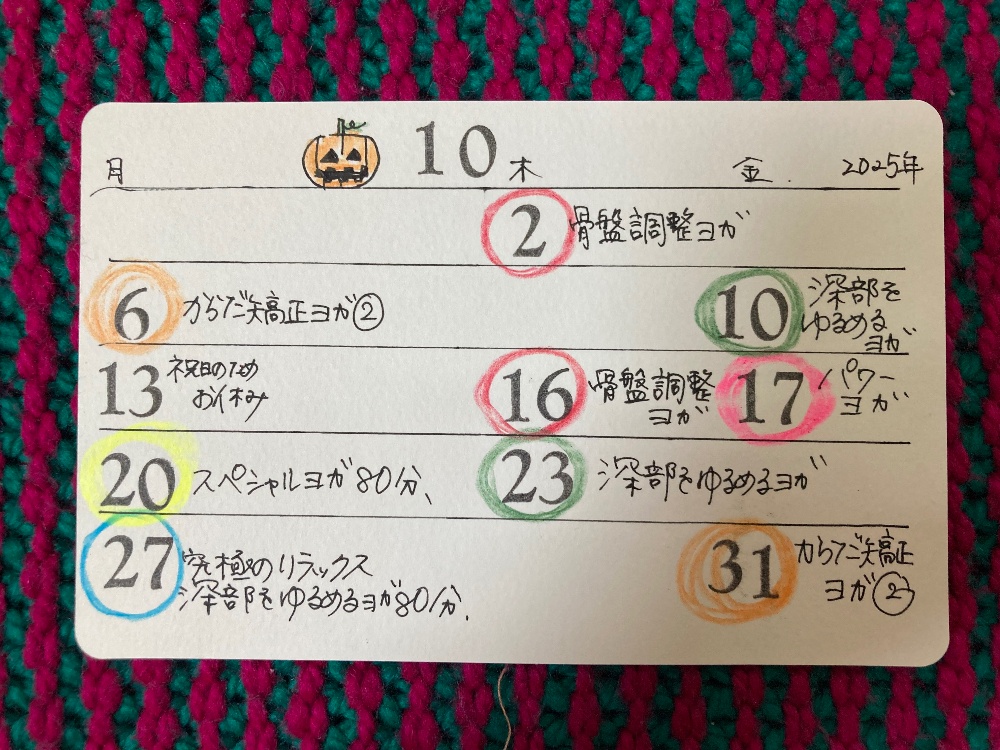 10
月 木 金. 2025年
2 骨盤調整ヨガ
6 からだ矯正ヨガ② 10 深部を
ゆるめる
ヨガ
13 祝日のため
お休み
16 骨盤調整
ヨガ
17 パワー
ヨガ
20 スペシャルヨガ80分、 23 深部をゆるめるヨガ
27 究極のリラックス
深部をゆるめるヨガ80分.
31 からだ矯正
ヨガ②